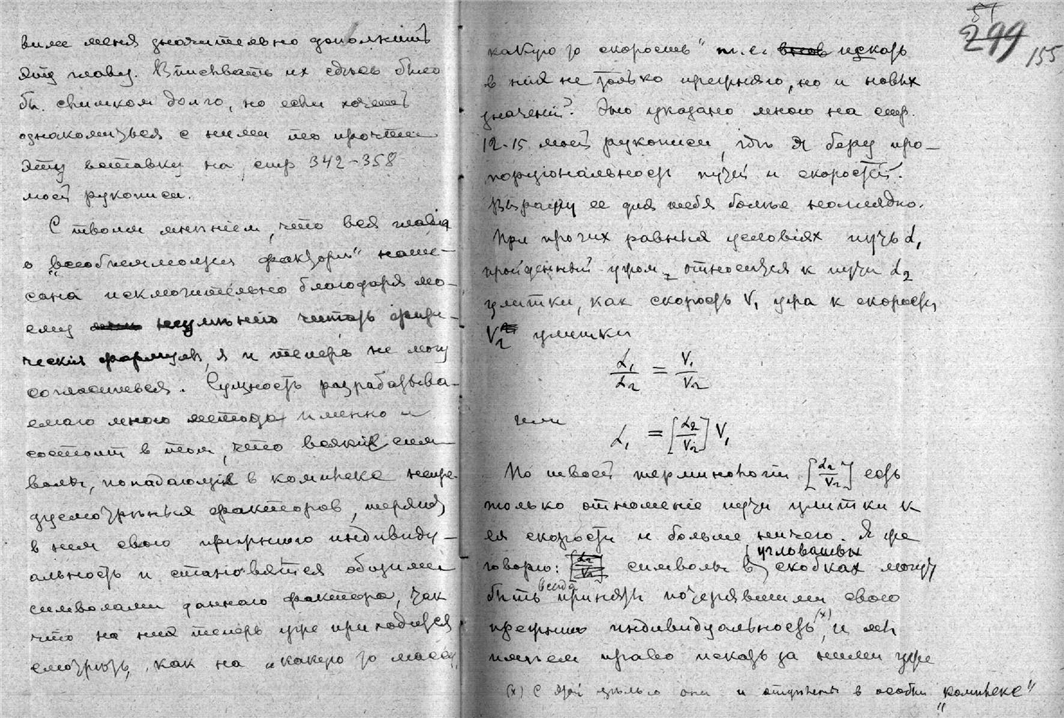 вило меня значительно дополнить
эту главу. Вписывать их сюда было
бы слишком долго, но если хочешь
ознакомиться с ними то прочти
эту вставку на стр 342-358
моей рукописи.
С твоим мнением, что вся глава
о "всеобъемлющем факторе" напи-
сана исключительно благодаря мо-
ему неумѣнию читать физи-
ческия формулы, я и теперь не могу
согласиться. Сущность разрабатыва-
емаго мною метода именно и
состоит в том, что всякие сим-
волы, попадающие в комплекс
факторов, теряют
в нем свою прежнюю индивиду-
альность и становятся общими
символами даннаго фактора, так
что на них теперь уже приходится
смотрѣть, как на "какую то массу",
57
299
155
какую то скорость" т. е. искать
в них не только прежняго, но и новых
значений? Это указано мною на стр.
12-15 моей рукописи, гдѣ я беру про-
порциональность путей и скоростей.
Выражу ее для тебя более наглядно.
При прочих равных условиях путь L₁
пройденный относится к пути L₂
улитки, как скорость V₁ к скорости
V₂ улитки
L₁/L₂ = V₁/V₂
или
L₁ = [L₂/V₂] V₁
По твоей терминологии [L₂/V₂] есть
только отношение пути улитки к
ея скорости и больше ничего. Я же
говорю: символы в угловатых скобках могут
быть всегда приняты потерявшими свою
прежнюю индивидуальность (x), и мы
имеем право искать за ними уже
(x) С этой цѣлью они и в особый "комплекс"